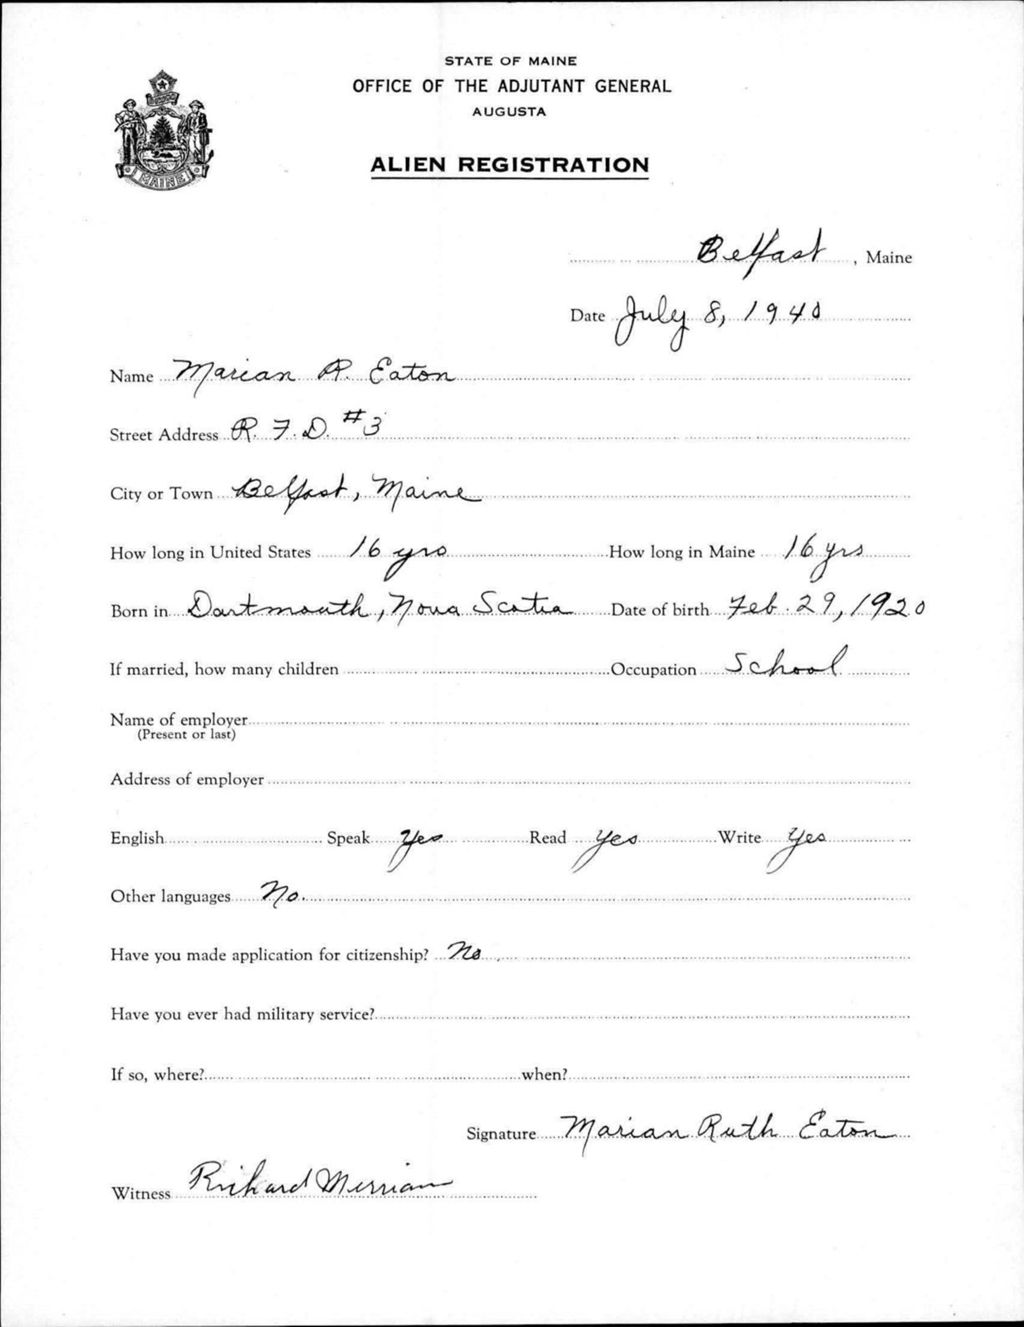 STATE OF MAINE
OFFICE OF THE ADJUTANT GENERAL
AUGUSTA
ALIEN REGISTRATION
MAINE
Belfast, Maine
Date July 8, 1940
Name Marian R. Eaton
Street Address R. F. D. #3
City or Town Belfast, Maine
How long in United States 16 yrs How long in Maine 16 yrs
Born in Dartmouth, Nova Scotia Date of birth Feb. 29, 1920
If married, how many children Occupation School
Name of employer
(Present or last)
Address of employer
English Speak Yes Read Yes Write Yes
Other languages No.
Have you made application for citizenship? No
Have you ever had military service?
If so, where? when?
Signature Marian Ruth Eaton
Witness Richard Merriam